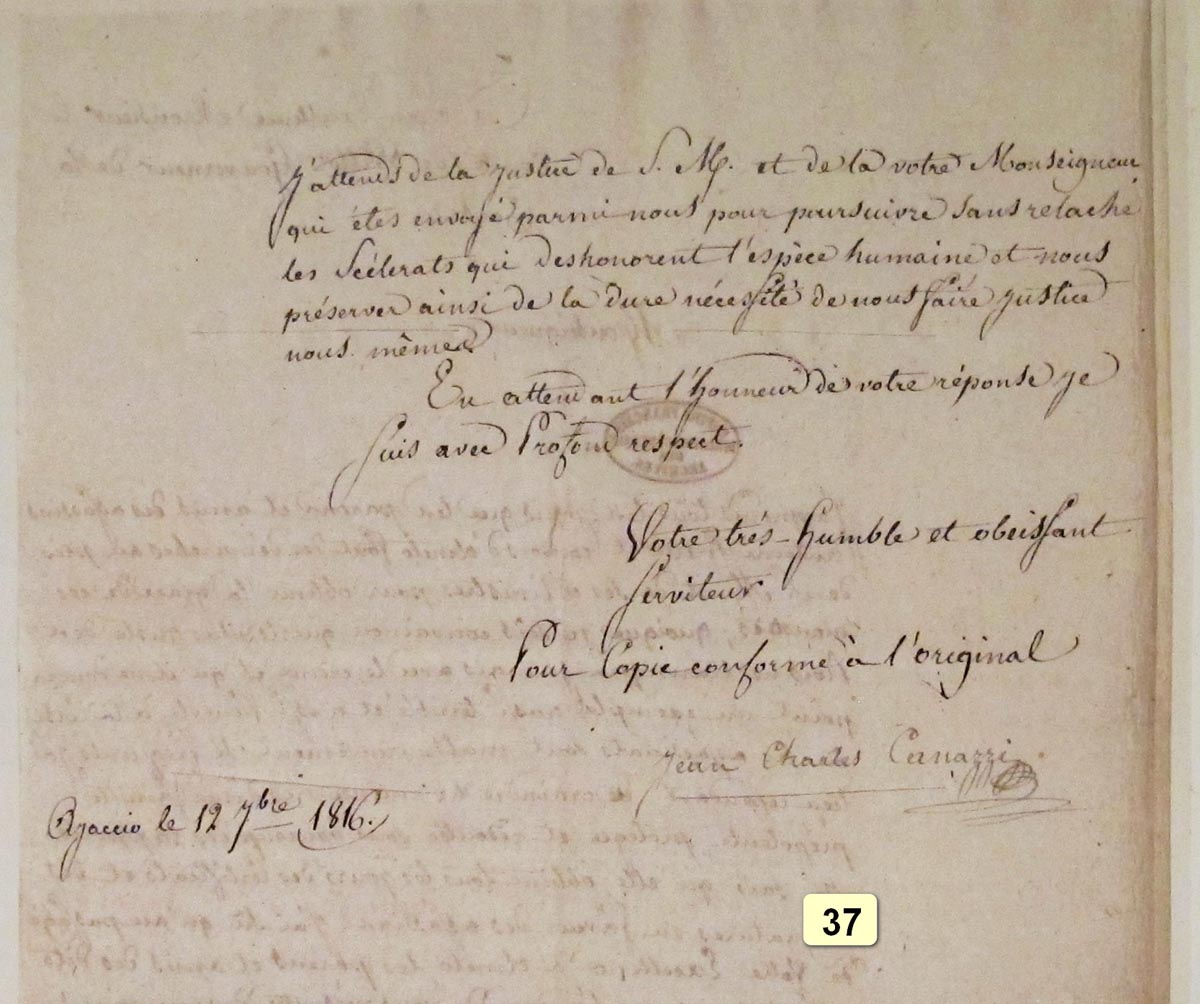 J'attends de la justice de S. M. et de la votre Monseigneur
qui êtes envoyé parmi nous pour poursuivre sans relache
les Scélerats qui deshonorent l'espèce humaine et nous
préserver ainsi de la dure nécessité de nous faire justice
nous mêmes
En attendant l'honneur de votre réponse je
suis avec Profond respect.
Votre très-humble et obeissant
Serviteur
Pour Copie conforme à l'original
Jean Charles
Ajaccio le 12 7bre 1816.
37